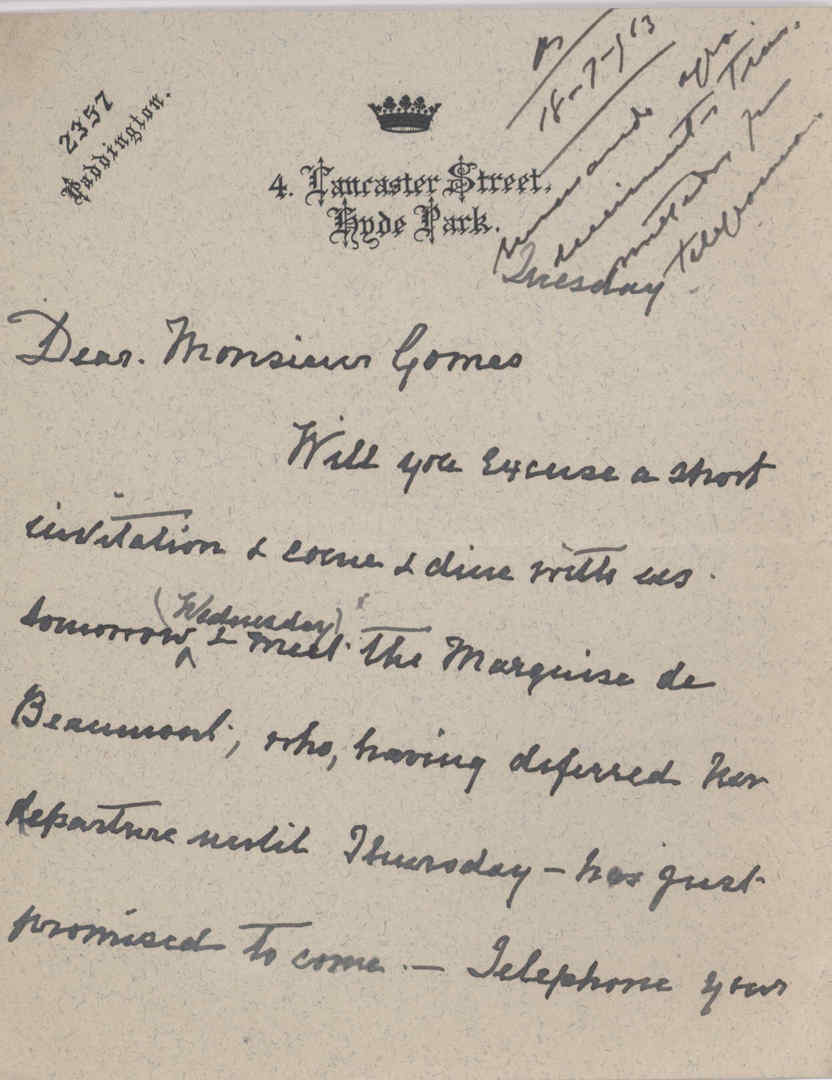 2357
Paddington.
4. Lancaster Street,
Hyde Park.
R
18-7-913
telephone.
Tuesday
Dear. Monsieur Gomes
Will you excuse a short
invitation & come & dine with us.
tomorrow (Wednesday) & meet the Marquise de
Beaumont, who, having deferred her
departure until Thursday – has just
promised to come. — Telephone your